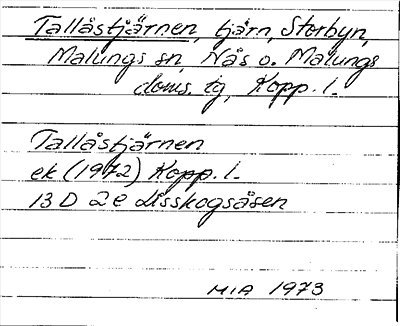 Tallåstjärnen, tjärn, Storbyn,
Malungs sn, Nås o. Malungs
doms. tg, Kopp. l.
Tallåstjärnen
ek (1972) Kopp. l.
13 D 2 e Lisskogsåsen
MIA 1973